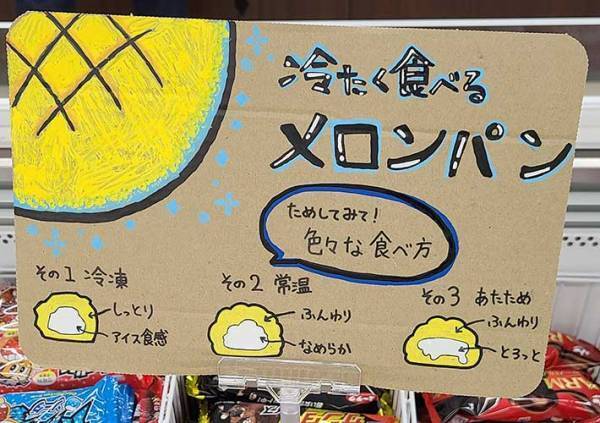 冷たく食べる
メロンパン
ためしてみて!
色々な食べ方
その1 冷凍
しっとり
アイス食感
その2 常温
ふんわり
なめらか
その3 あたため
ふんわり
とろっと